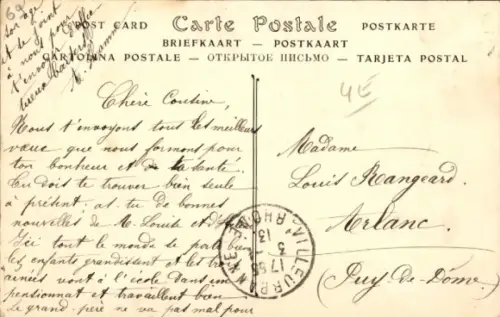 69
son âge
et le soir
nous pour
à t'envoyer
POST CARD Carte Postale POSTKARTE
BRIEFKAART — POSTKAART
CARTOLINA POSTALE — ОТКРЫТОЕ ПИСЬМО — TARJETA POSTAL
4E
Chère Cousine,
Nous t'envoyons tous les meilleurs
vœux que nous formons pour
ton bonheur et ta santé.
Tu dois te trouver bien seule
à présent. as tu de bonnes
nouvelles de M. Louis et
Ici tout le monde se porte bien
les enfants grandissent et les
ainées vont à l'école dans un
pensionnat et travaillent bien
Le grand père ne va pas mal pour
Madame
Louis Rangeard
Arlanc.
(Puy-de-Dôme)
VILLEURBANNE
RHONE
17 55
3
13